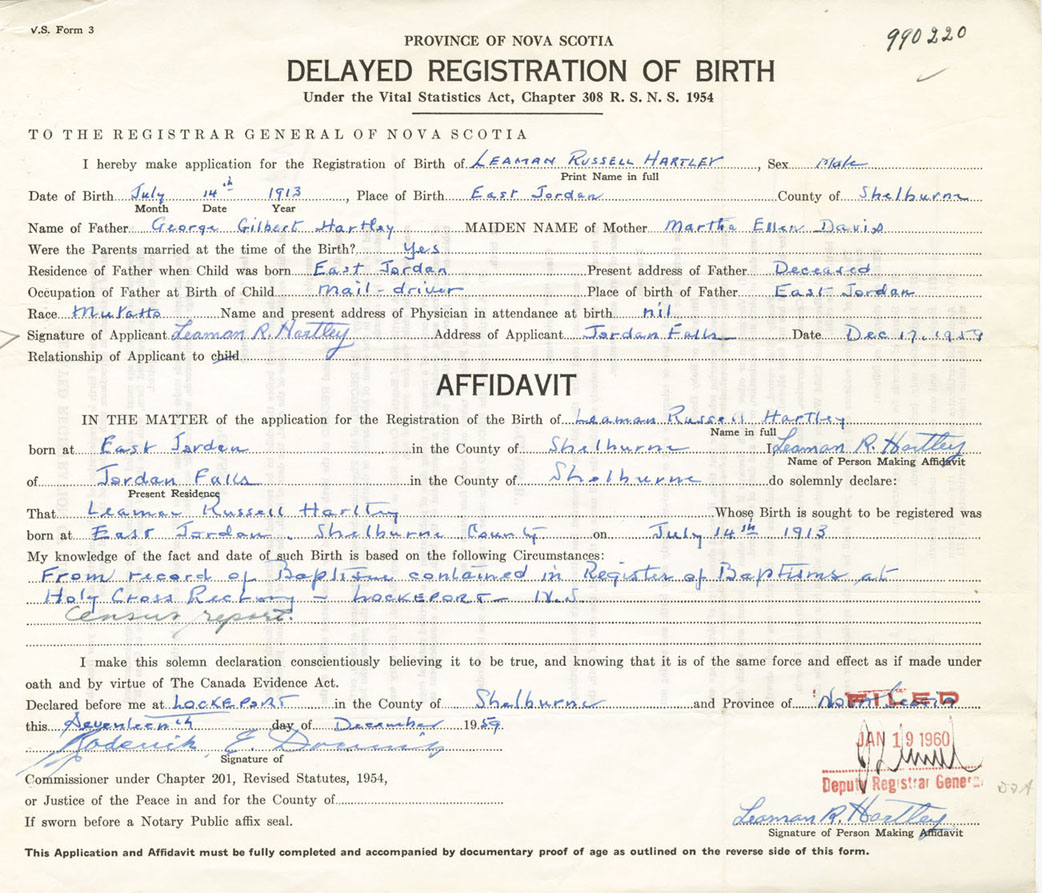 V.S. Form 3
990220
PROVINCE OF NOVA SCOTIA
DELAYED REGISTRATION OF BIRTH
Under the Vital Statistics Act, Chapter 308 R. S. N. S. 1954
TO THE REGISTRAR GENERAL OF NOVA SCOTIA
I hereby make application for the Registration of Birth of LEAMAN RUSSELL HARTLEY, Sex Male
Print Name in full
Date of Birth July 14th 1913, Place of Birth East Jordan County of Shelburne
Month Date Year
Name of Father George Gilbert Hartley MAIDEN NAME of Mother Martha Ellen Davis
Were the Parents married at the time of the Birth? Yes
Residence of Father when Child was born East Jordan Present address of Father Deceased
Occupation of Father at Birth of Child Mail-driver Place of birth of Father East Jordan
Race Mulatto Name and present address of Physician in attendance at birth nil
Signature of Applicant Leaman R. Hartley Address of Applicant Jordan Falls Date Dec 17, 1959
Relationship of Applicant to child
AFFIDAVIT
IN THE MATTER of the application for the Registration of the Birth of Leaman Russell Hartley
Name in full
born at East Jordan in the County of Shelburne I Leaman R. Hartley
Name of Person Making Affidavit
of Jordan Falls in the County of Shelburne do solemnly declare:
Present Residence
That Leaman Russell Hartley Whose Birth is sought to be registered was
born at East Jordan, Shelburne County on July 14th 1913
My knowledge of the fact and date of such Birth is based on the following Circumstances:
From record of Baptism contained in Register of Baptisms at
Holy Cross Rectory - LOCKEPORT - N.S.
Census report.
I make this solemn declaration conscientiously believing it to be true, and knowing that it is of the same force and effect as if made under
oath and by virtue of The Canada Evidence Act.
Declared before me at LOCKEPORT in the County of Shelburne and Province of Nova Scotia
FILED
this Seventeenth day of December 1959
JAN 19 1960
Roderick E.
Signature of
Commissioner under Chapter 201, Revised Statutes, 1954,
Deputy Registrar General
or Justice of the Peace in and for the County of
Leaman R. Hartley
If sworn before a Notary Public affix seal.
Signature of Person Making Affidavit
This Application and Affidavit must be fully completed and accompanied by documentary proof of age as outlined on the reverse side of this form.